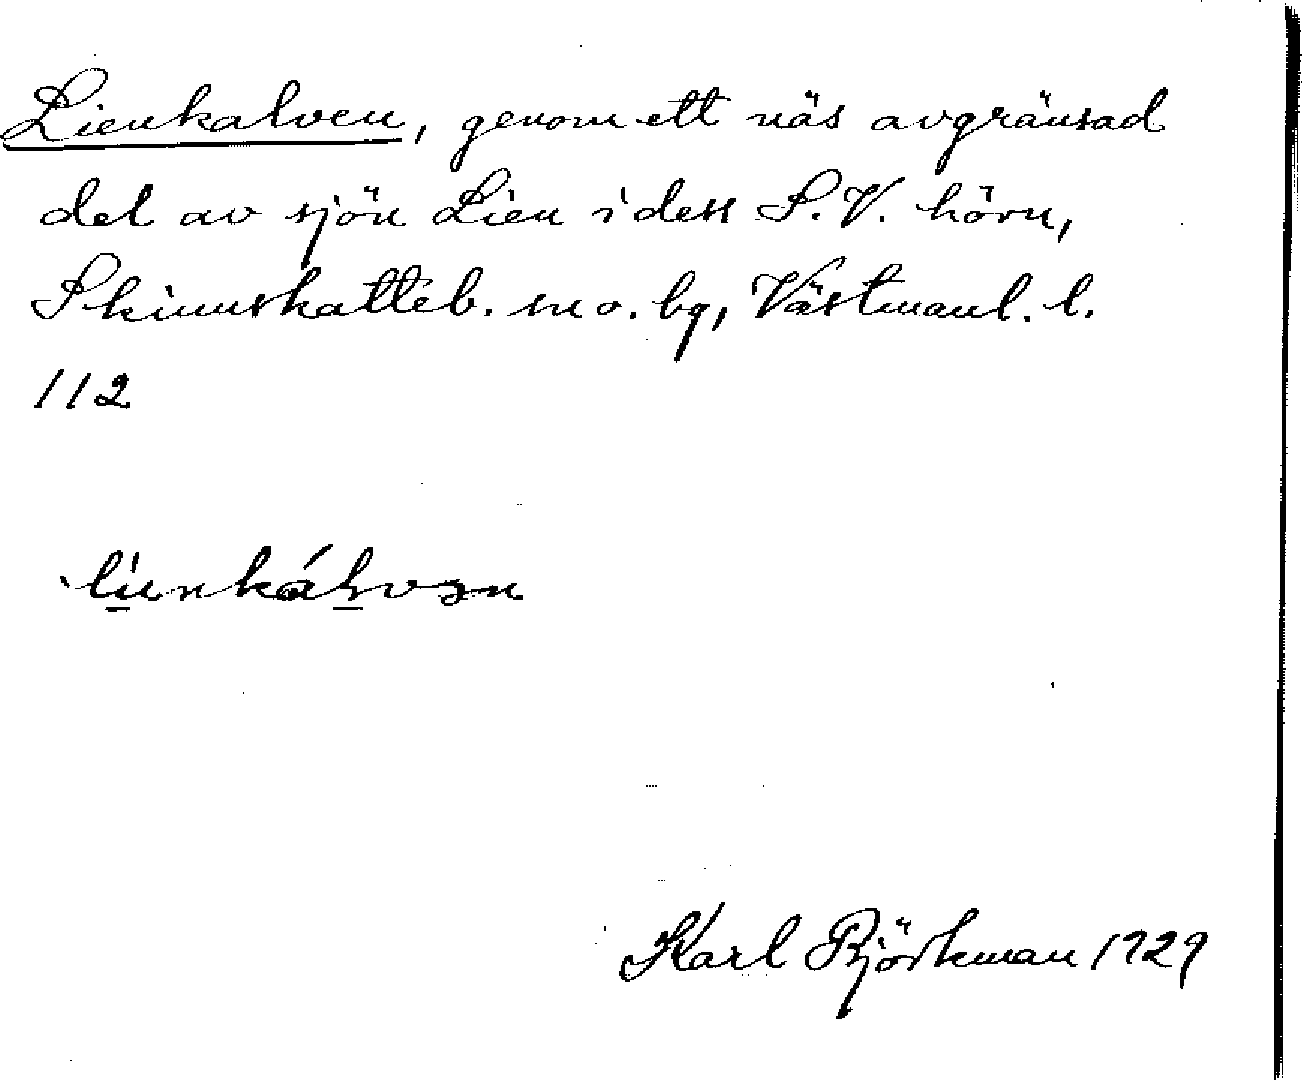 Lienkalven, genom ett näs avgränsad
del av sjön Lien i dess S.V. hörn,
Skinnskatteb. sn o. bg, Västmanl. l.
112
Karl Björkman 1929